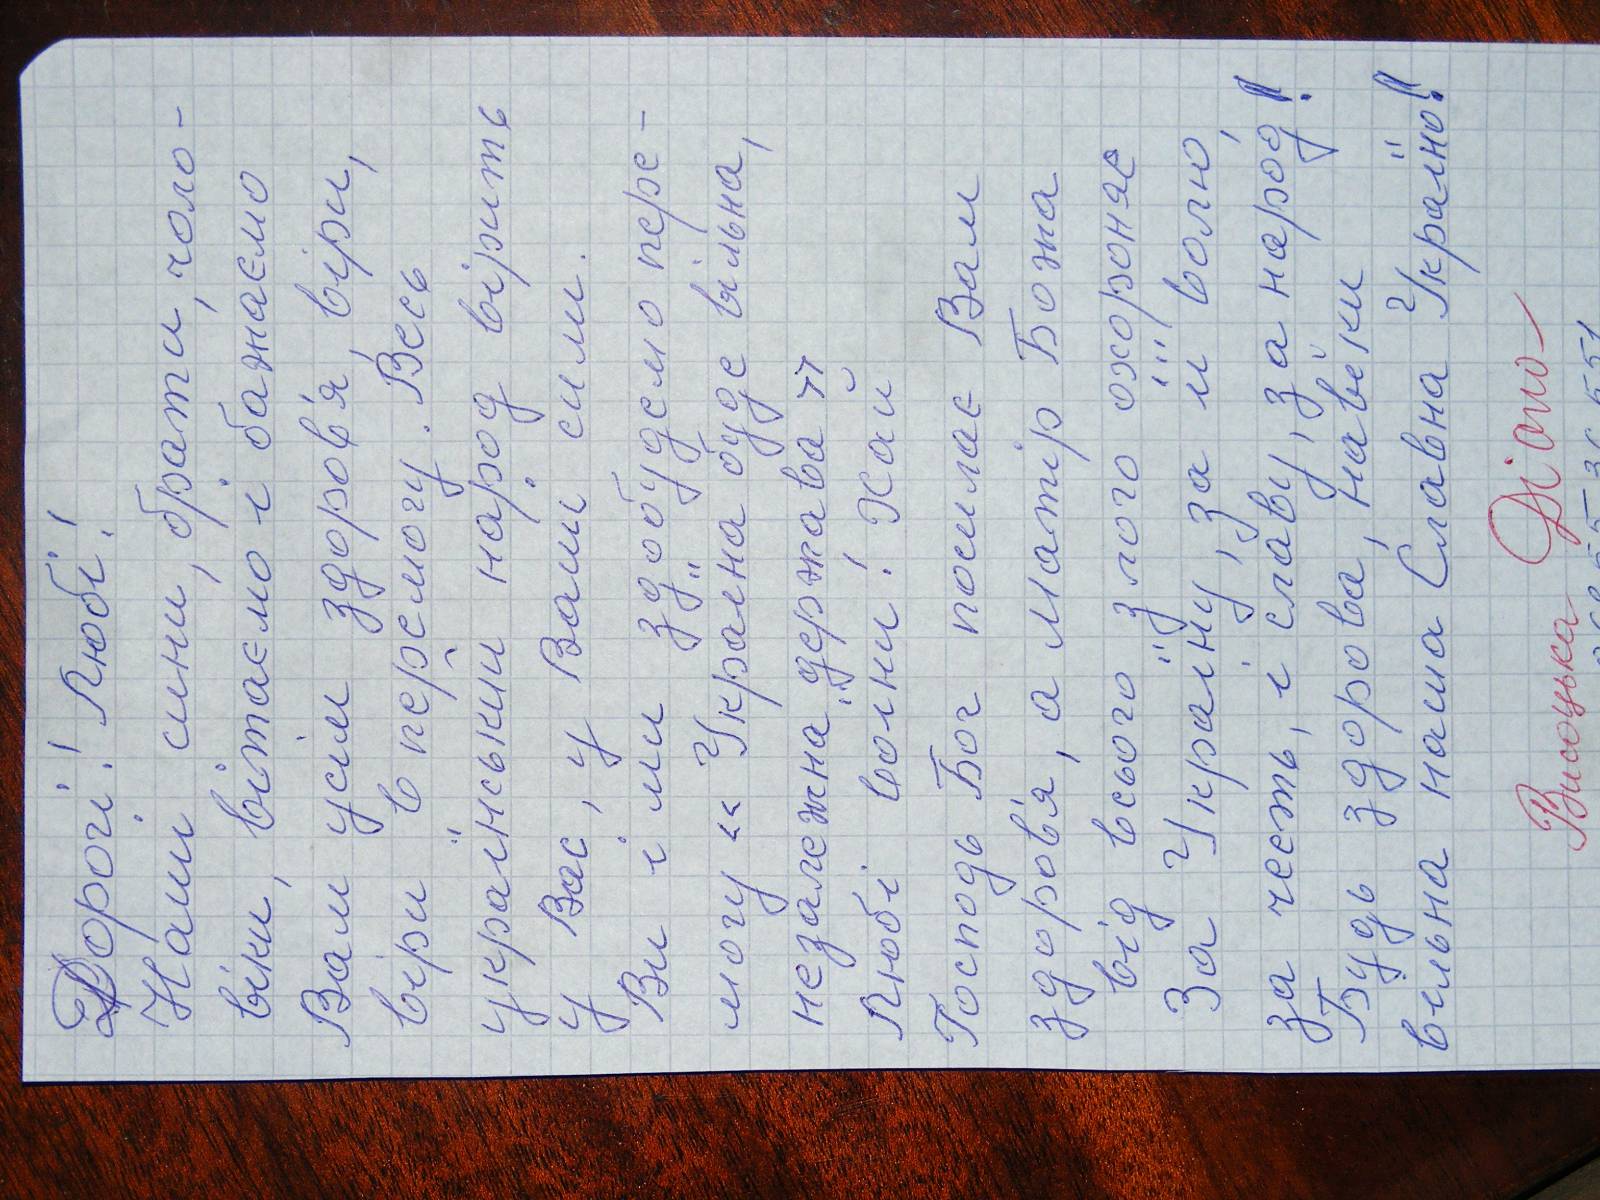 Дорогі! Любі!
Наші сини, брати, чоло-
віки, вітаємо і бажаємо
Вам усім здоров'я, віри,
віри в перемогу. Весь
український народ вірить
у Вас, у Ваші сили.
Ви і ми здобудемо пере-
могу "Україна буде вільна,
незалежна держава"
Любі воїни! Хай
Господь Бог посилає Вам
здоров'я, а Матір Божа
від всього злого охороняє
За Україну, за її волю,
за честь, і славу, за народ!
Будь здорова, навеки
вільна наша Славна Україно!
Висоцька Діана